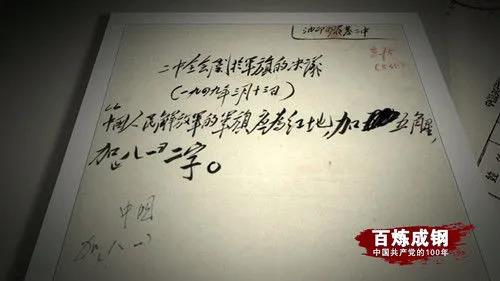 二中全会关于军旗的决议
(一九四九年三月十三日)
中国人民解放军的军旗应为红地,加五角星,
加“八一”二字。
中国
百炼成钢
中国共产党的100年